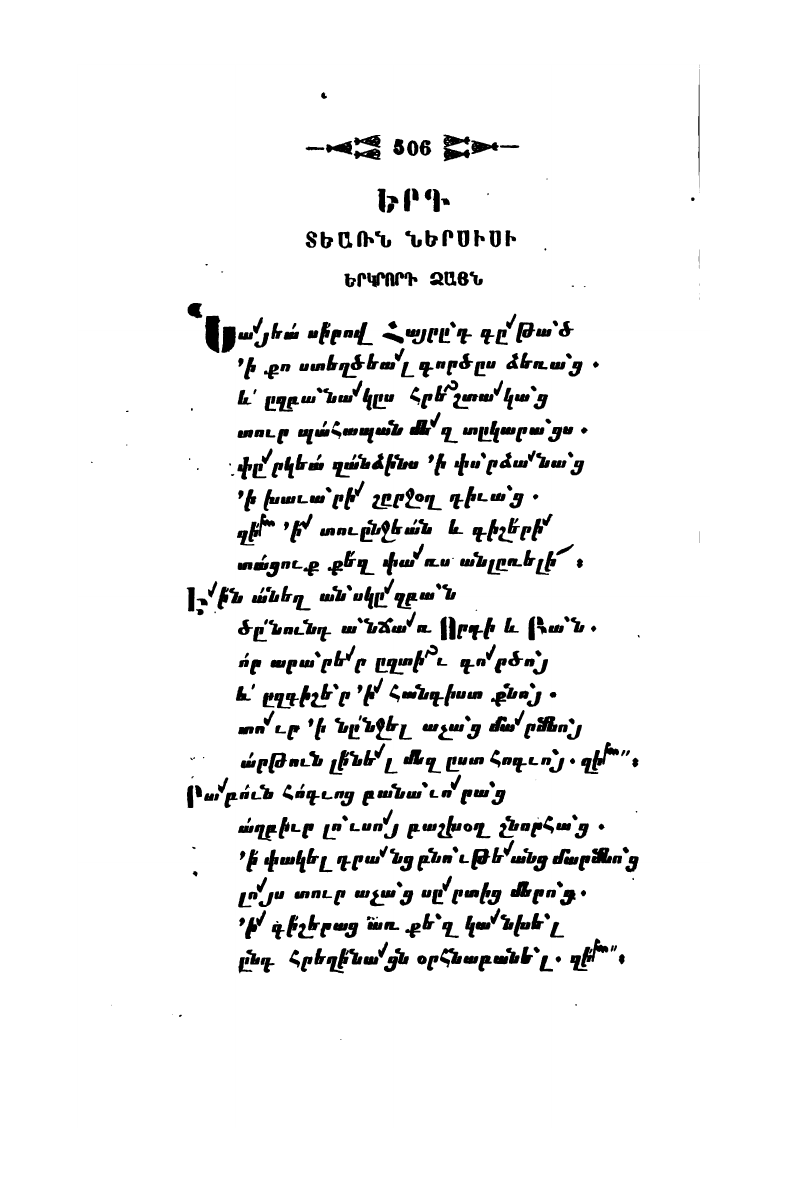 506
ԵՐԳ
ՏԵԱՌՆ ՆԵՐՍԻՍԻ
ԵՐԿՐՈՐԴ ՁԱՅՆ
Նայեա սիրով Հայրըդ գըթած
՚ի քո ստեղծեալ գործըս ձեռաց.
և ըզբանակըս Հրեշտակաց
տուր պահապան մեզ տըկարացս.
փըրկեա զանձինս ՚ի փորձանաց
՚ի խաւարի շըրջօղ դիւաց.
զի ՚ի տուընջեան և գիշերի
տացուք քեզ փառս անլըռելի։
Էին անեղ անսկըզբան
ծընունդ անճառ Որդի և Բան.
որ արարեր ըզտիւ գործոյ
և ըզգիշեր ՚ի հանգիստ քնոյ.
տուր ՚ի նընջել աչաց մարմնոյ
արթուն լինել մեզ ըստ հոգւոյ. զի՛՛։
Րաբուն հոգւոց բանաւորաց
աղբիւր լուսոյ բաշխօղ շնորհաց.
՚ի փակել դրանց բնութեանց մարմնոց
լոյս տուր աչաց սըրտից մերոց.
՚ի գիշերաց առ քեզ կանխել
ընդ Հրեղինացն օրհնաբանել. զի՛՛։